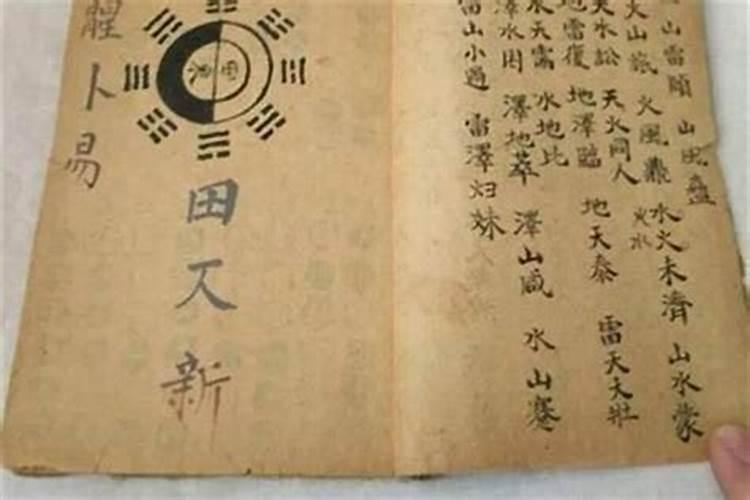 山雷頤 山風蠱
水火未濟 山水蒙
火山旅 火風鼎 火水
天水訟 天火同人
地天泰 雷天大壯
地雷復 地澤臨
水天需 水地比
澤水困 澤地萃 澤山咸 水山蹇
雷山小過 雷澤归妹
田 新
卜易